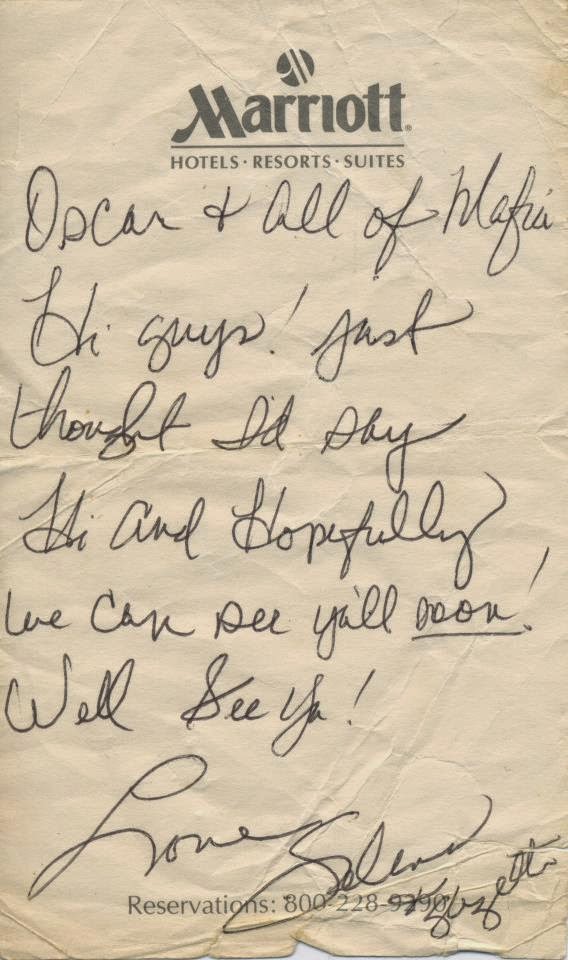 Marriott
HOTELS · RESORTS · SUITES
Oscar + all of Mafia
Hi guys! just
thought I'd say
Hi and Hopefully
we can see ya'll soon!
Well See Ya!
Love Selena
Reservations: 800-228-9290